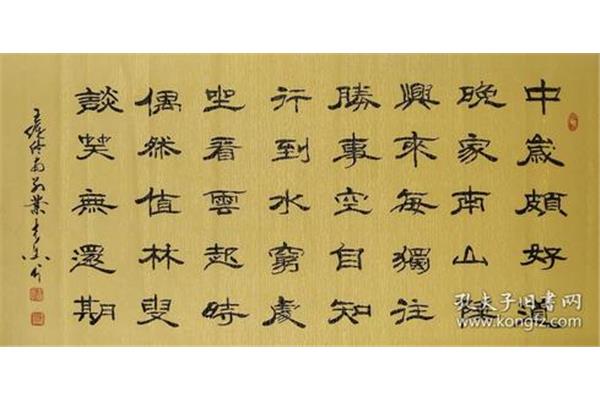 中歲頗好道
晚家南山陲
興來每獨往
勝事空自知
行到水窮處
坐看雲起時
偶然值林叟
談笑無還期
王維终南别業
孔夫子旧书网
www.kongfz.com